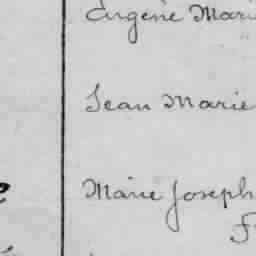 Eugène Mari
Jean Marie
Marie Joseph